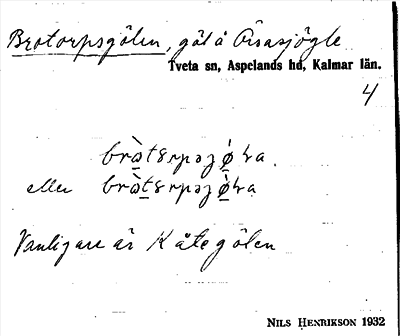 Brotorpsgölen, göl å Åsasjögle
Tveta sn, Aspelands hd, Kalmar län.
4
eller
Vanligare är Kåtegölen
NILS HENRIKSON 1932